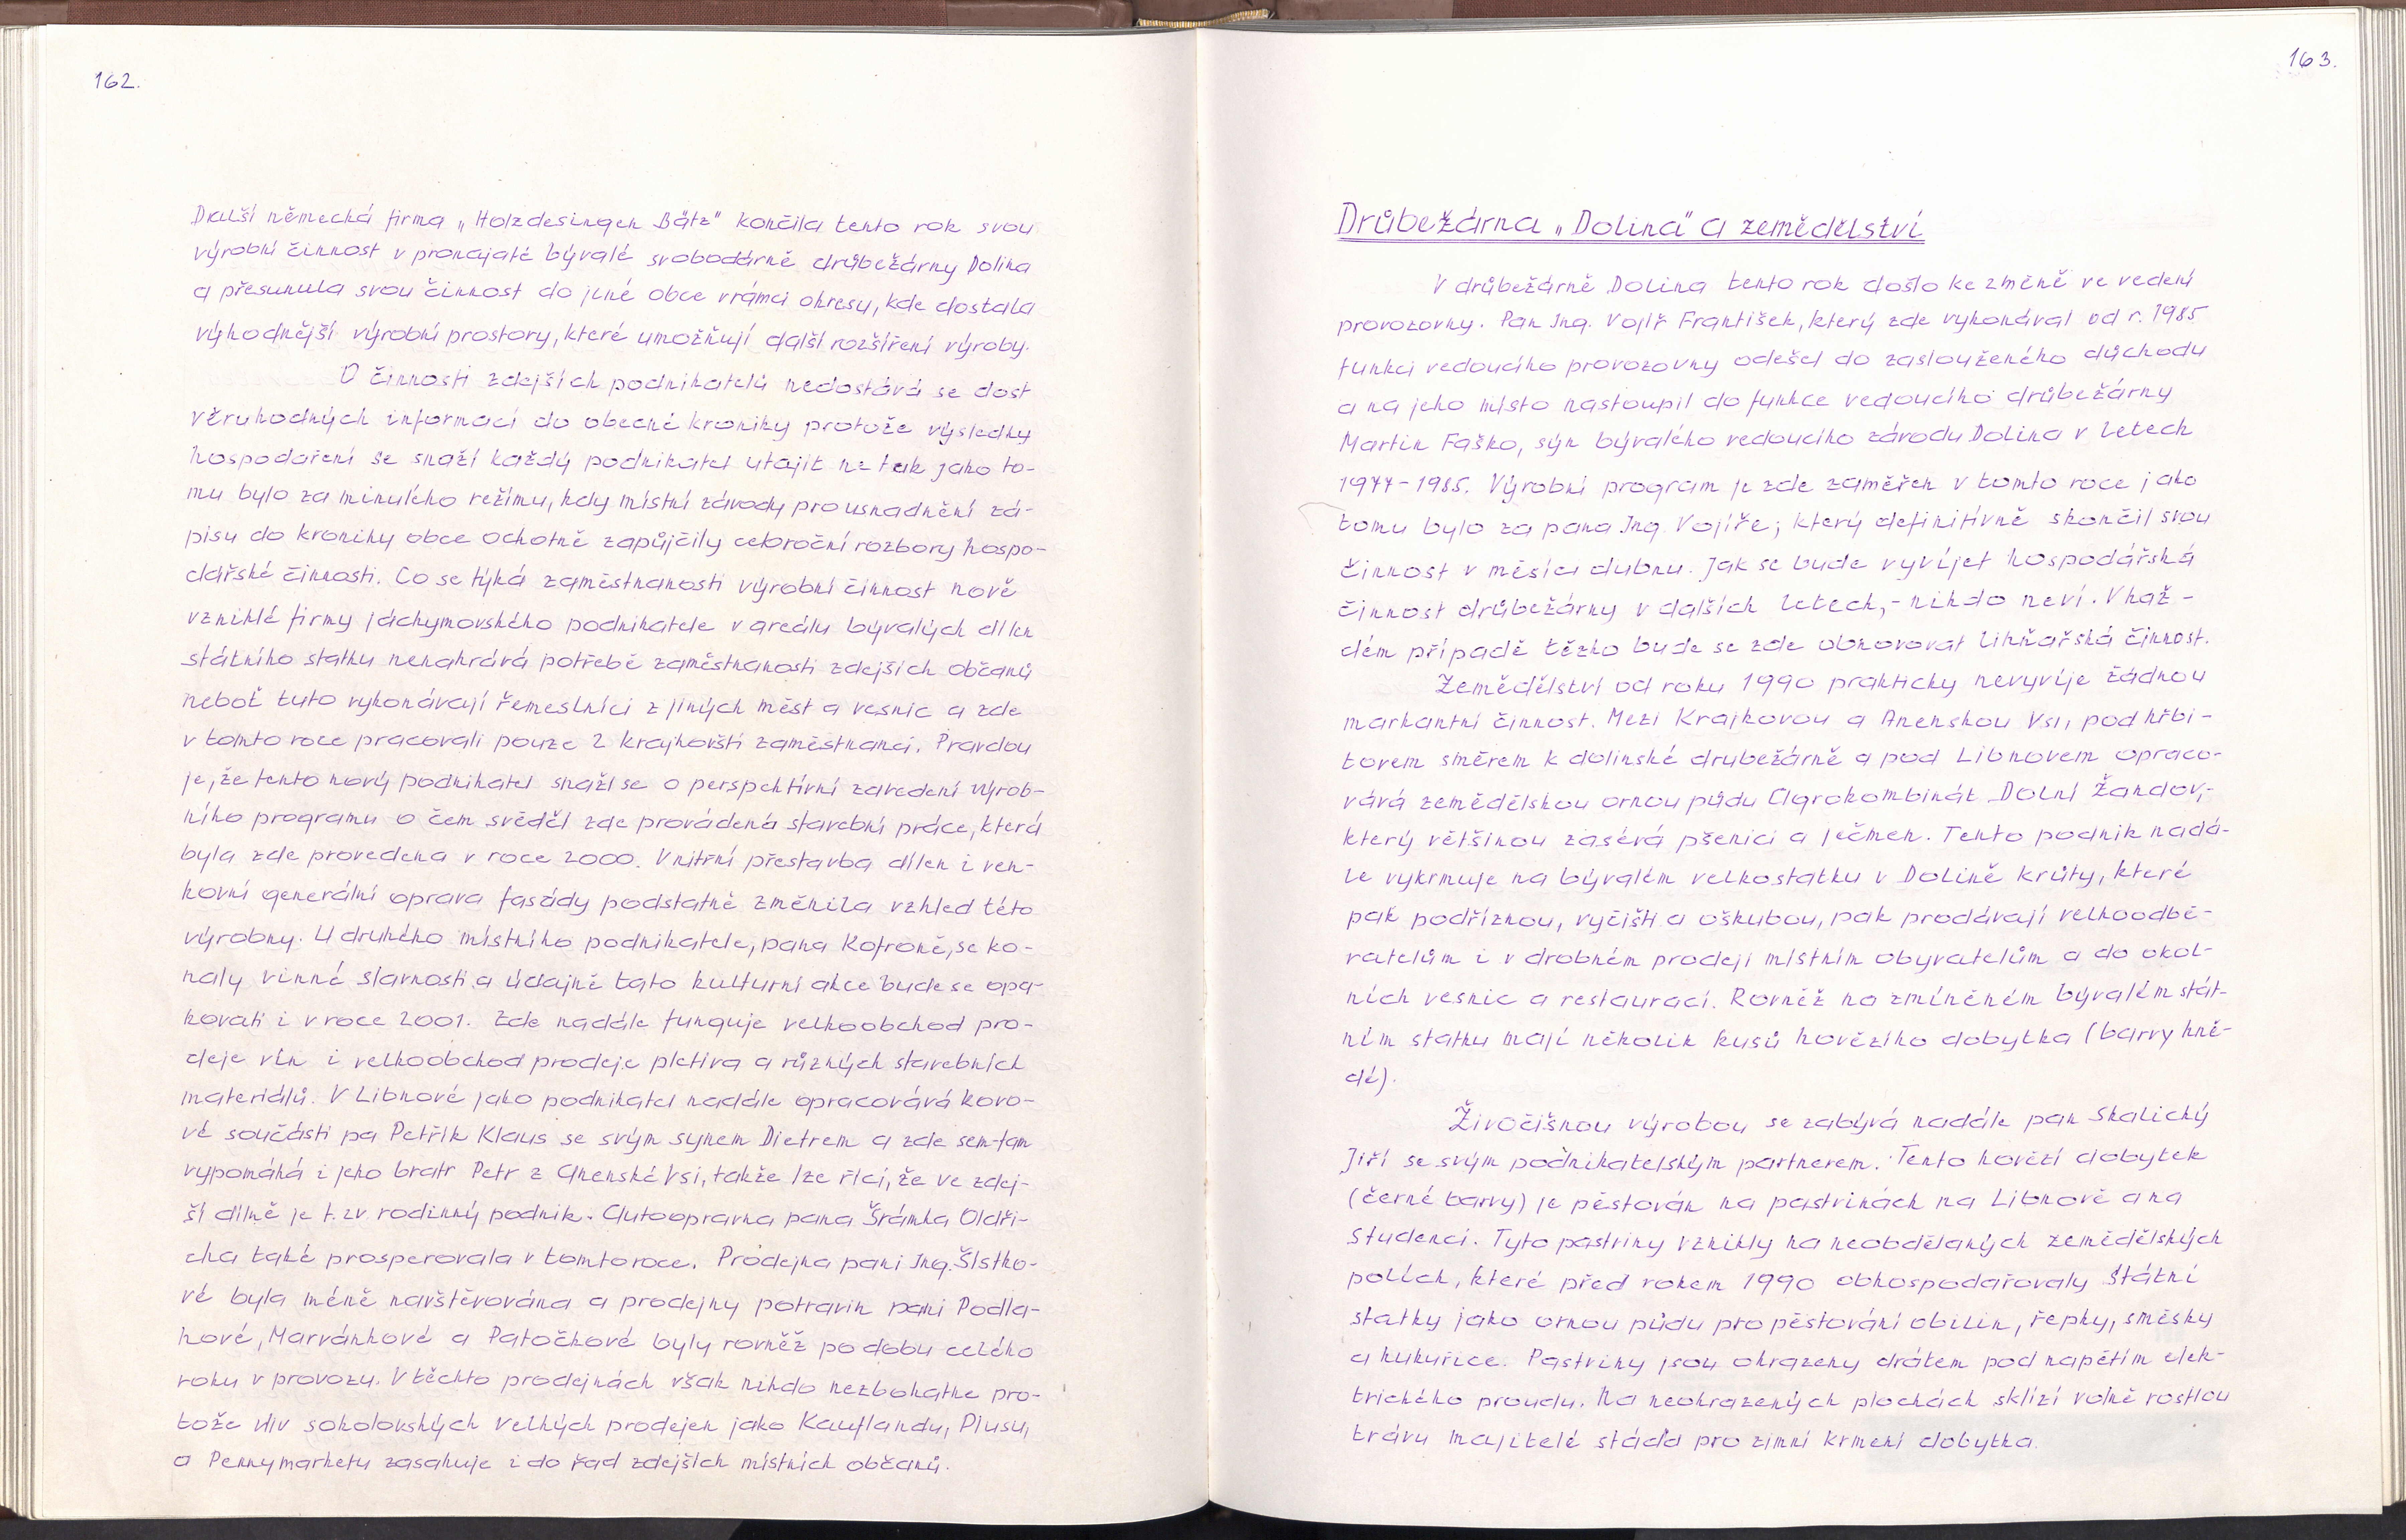 162.
Další německá firma „Holzdesingen Bätz" končila tento rok svou
výrobní činnost v pronajaté bývalé svobodárně drůbežárny Dolina
a přesunula svou činnost do jiné obce vrámci okresu, kde dostala
výhodnější výrobní prostory, které umožňují další rozšíření výroby.
O činnosti zdejších podnikatelů nedostává se dost
věruhodných informací do obecné kroniky protože výsledky
hospodaření se snaží každý podnikatel utajit ne tak jako to-
mu bylo za minulého režimu, kdy místní závody pro usnadnění zá-
pisu do kroniky obce ochotně zapůjčily celoroční rozbory hospo-
dářské činnosti. Co se týká zaměstnanosti výrobní činnost nově
vzniklé firmy jáchymovského podnikatele v areálu bývalých dílen
státního statku nenahrává potřebě zaměstnanosti zdejších občanů
neboť tuto vykonávají řemeslníci z jiných měst a vesnic a zde
v tomto roce pracovali pouze 2 krajkovští zaměstnanci. Pravdou
je, že tento nový podnikatel snaží se o perspektivní zavedení výrob-
ního programu o čem svědčí zde prováděná stavební práce, která
byla zde provedena v roce 2000. Vnitřní přestavba dílen i ven-
kovní generální oprava fasády podstatně změnila vzhled této
výrobny. U druhého místního podnikatele, pana Kofroně, se ko-
naly vinné slavnosti a údajně tato kulturní akce bude se opa-
kovati i v roce 2001. Zde nadále funguje velkoobchod pro-
deje vín i velkoobchod prodeje pletiva a různých stavebních
materiálů. V Libnové jako podnikatel nadále opracovává kovo-
vé součásti pa Petřík Klaus se svým synem Dietrem a zde sem-tam
vypomáhá i jeho bratr Petr z Anenské Vsi, takže lze říci, že ve zdej-
ší dílně je t.zv. rodinný podnik. Autoopravna pana Šrámka Oldři-
cha také prosperovala v tomto roce. Prodejna paní Ing. Šístko-
vé byla méně navštěvována a prodejny potravin paní Podla-
hové, Marvánkové a Patočkové byly rovněž po dobu celého
roku v provozu. V těchto prodejnách však nikdo nezbohatne pro-
tože vliv sokolovských velkých prodejen jako Kauflandu, Plusu,
a Pennymarketu zasahuje i do řad zdejších místních občanů.
163.
Drůbežárna „Dolina" a zemědělství
V drůbežárně Dolina tento rok došlo ke změně ve vedení
provozovny. Pan Ing. Vojíř František, který zde vykonával od r. 1985
funkci vedoucího provozovny odešel do zaslouženého důchodu
a na jeho místo nastoupil do funkce vedoucího drůbežárny
Martin Faško, syn bývalého vedoucího závodu Dolina v letech
1977-1985. Výrobní program je zde zaměřen v tomto roce jako
tomu bylo za pana Ing. Vojíře; který definitívně skončil svou
činnost v měsíci dubnu. Jak se bude vyvíjet hospodářská
činnost drůbežárny v dalších letech,- nikdo neví. V kaž-
dém případě těžko bude se zde obnovovat líhňařská činnost.
Zemědělství od roku 1990 prakticky nevyvíje žádnou
markantní činnost. Mezi Krajkovou a Anenskou Vsí, pod hřbi-
tovem směrem k dolinské drubežárně a pod Libnovem opraco-
vává zemědělskou ornou půdu Agrokombinát Dolní Žandov,-
který většinou zasévá pšenici a ječmen. Tento podnik nadá-
le vykrmuje na bývalém velkostatku v Dolině krůty, které
pak podříznou, vyčistí a oškubou, pak prodávají velkoodbě-
ratelům i v drobném prodeji místním obyvatelům a do okol-
ních vesnic a restaurací. Rovněž na zmíněném bývalém stát-
ním statku mají několik kusů hovězího dobytka (barvy hně-
dé).
Živočišnou výrobou se zabývá nadále pan Skalický
Jiří se svým podnikatelským partnerem. Tento hovězí dobytek
(černé barvy) je pěstován na pastvinách na Libnově a na
Studenci. Tyto pastviny vznikly na neobdělaných zemědělských
polích, které před rokem 1990 obhospodařovaly Státní
statky jako ornou půdu pro pěstování obilin, řepky, směsky
a kukuřice. Pastviny jsou ohrazeny drátem pod napětím elek-
trického proudu. Na neohrazených plochách sklízí volně rostlou
trávu majitelé stáda pro zimní krmení dobytka.